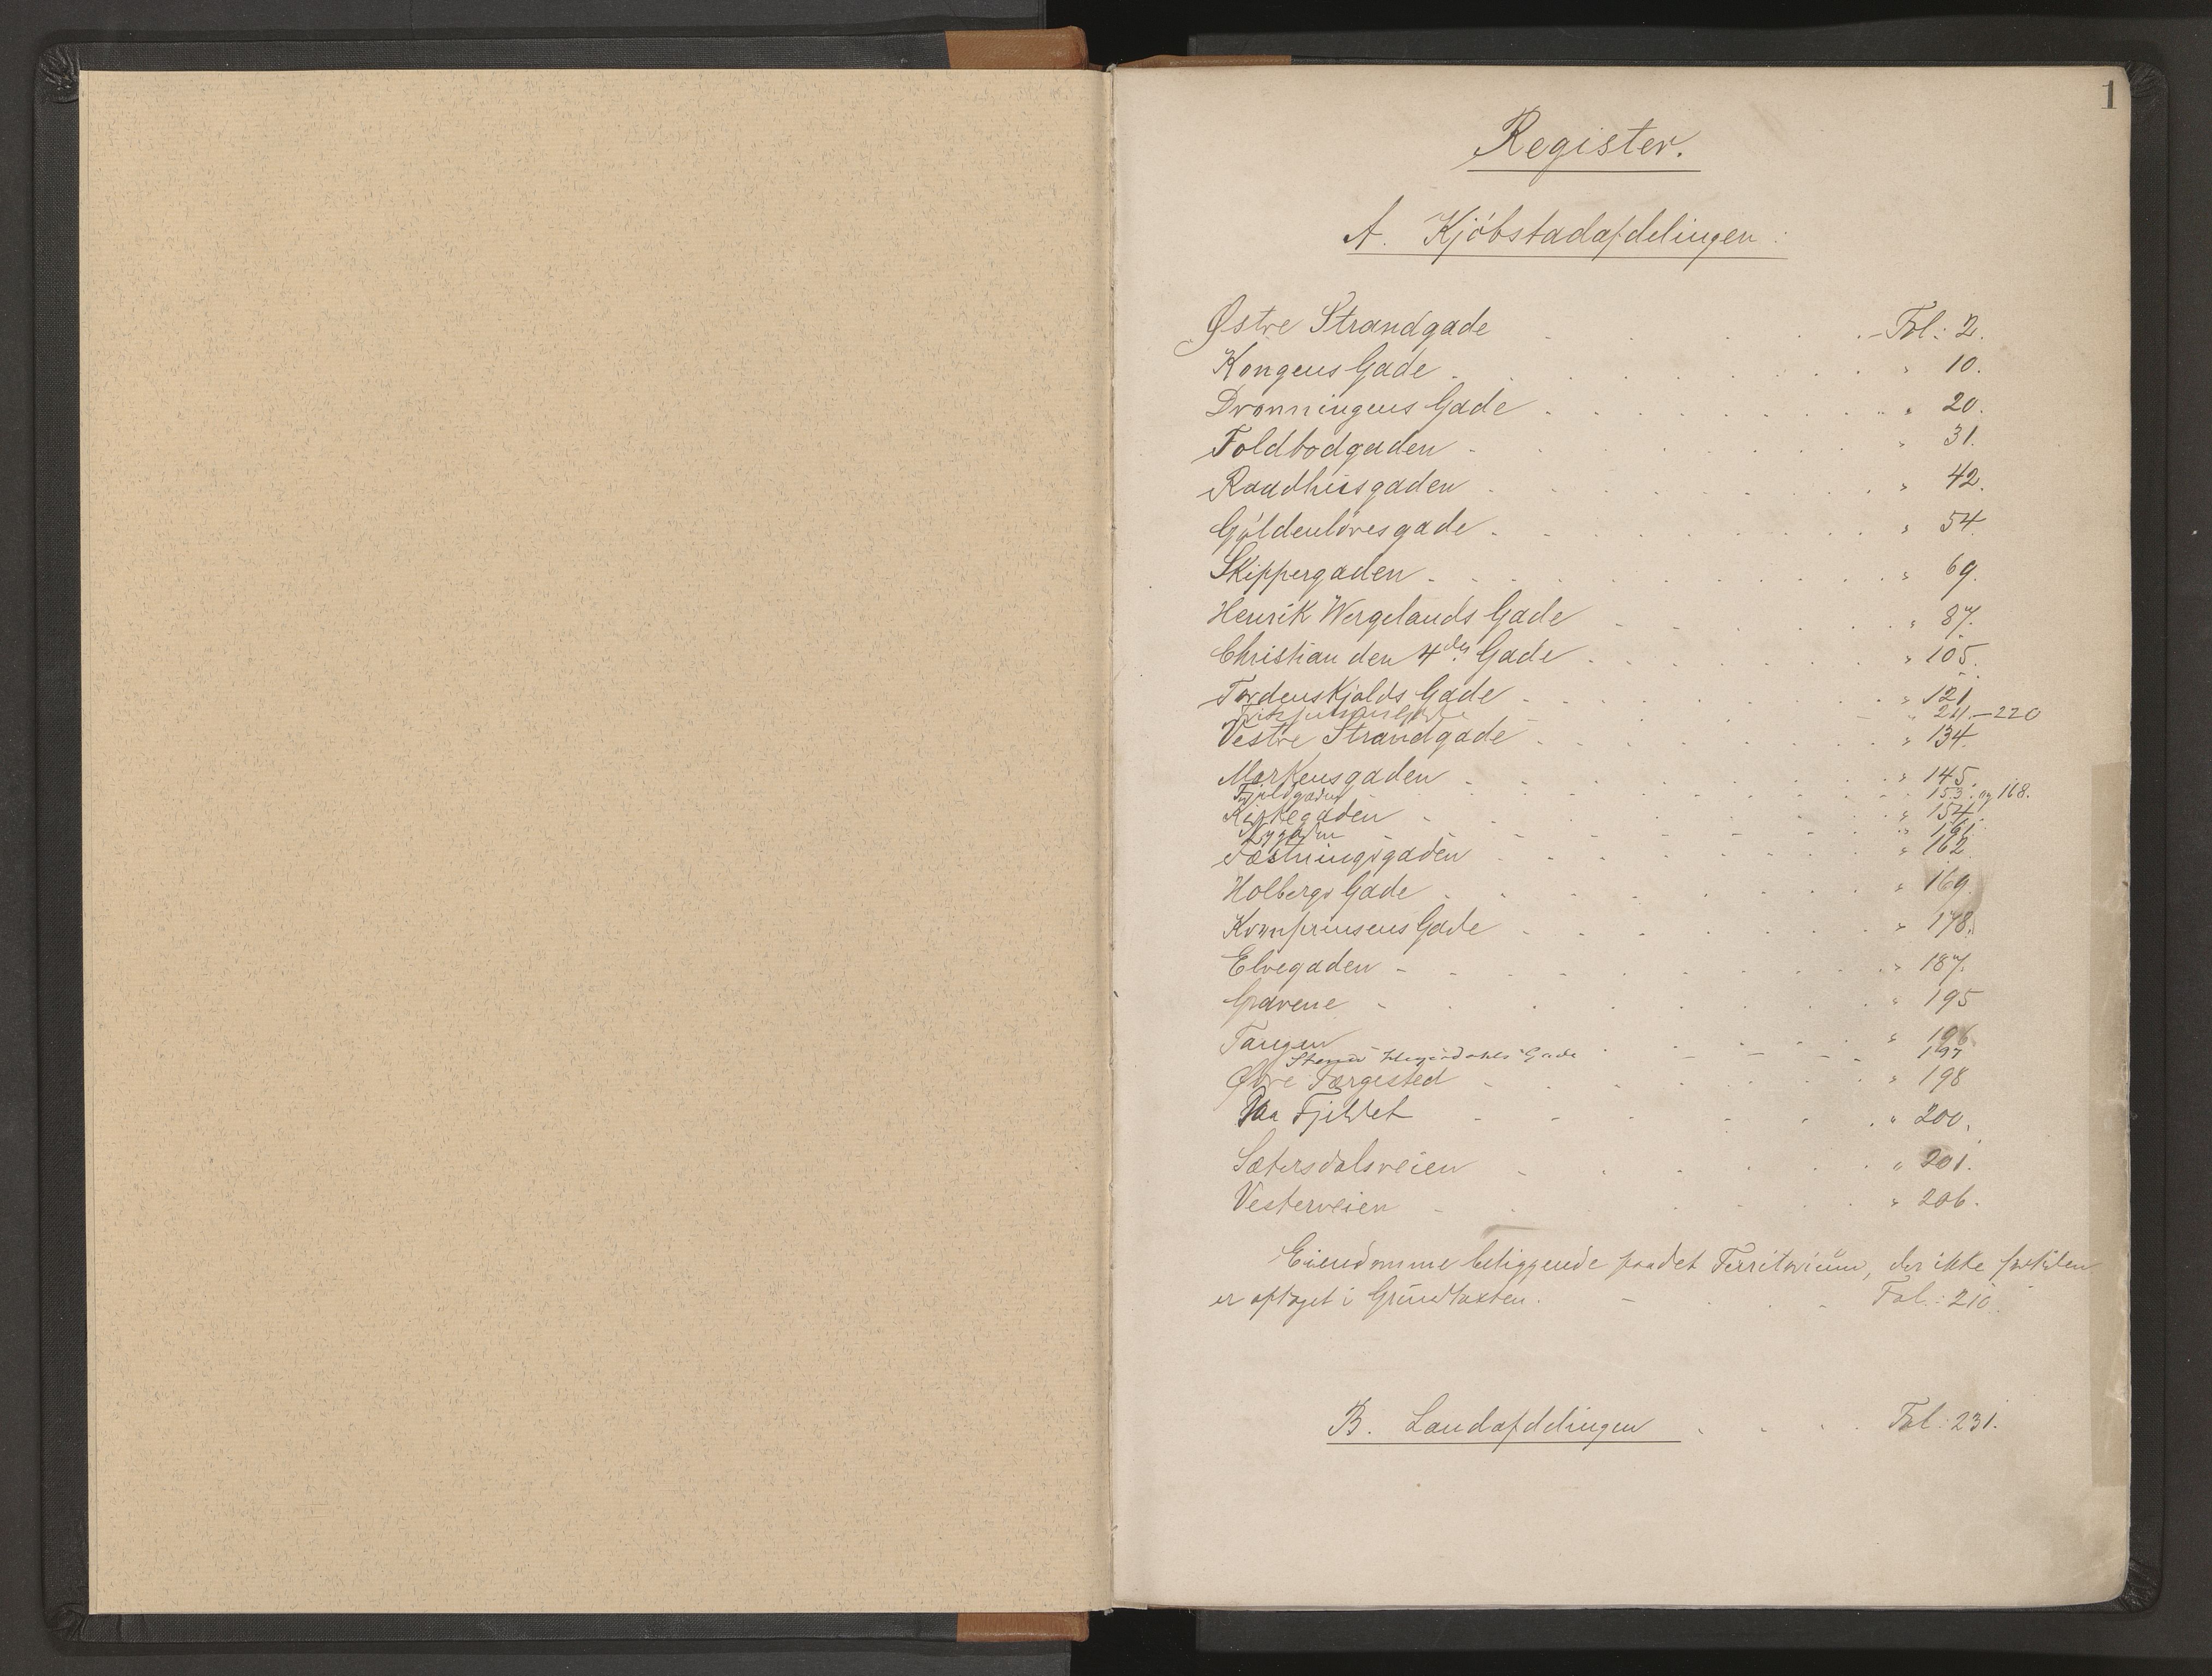 1
Register.
A. Kjöbstadafdelingen:
Østre Strandgade . . . . . Fol.: 2.
Kongens Gade . . . . . " 10.
Dronningens Gade . . . . . " 20.
Toldbodgaden . . . . . " 31.
Raadhusgaden . . . . . " 42.
Gyldenlövesgade . . . . . " 54
Skippergaden . . . . . " 69.
Henrik Wergelands Gade . . . . . " 87.
Christian den 4des Gade . . . . . " 105.
Tordenskjolds Gade . . . . . " 121
" 211.-220
Vestre Strandgade . . . . . " 134.
Markensgaden . . . . . " 145.
Fjeldgaden . . . . . " 153. og 168.
Kirkegaden . . . . . " 154.
Nygaden - - - - - " 161.
Fæstningsgaden . . . . . " 162.
Holbergs Gade . . . . . " 169.
Kronprinsens Gade . . . . . " 178.
Elvegaden . . . . . " 187.
Gravene . . . . . " 195
Tangen . . . . . " 196.
Gade - - - - 197
Øvre Færgested . . . . . " 198
Paa Fjeldet . . . . . " 200.
Sætersdalsveien . . . . . " 201.
Vesterveien . . . . . " 206.
Eiendomme beliggende paa det Territorium, der ikke forhen
er optaget i Grundtaxten. - . . - Fol.: 210.
B. Landafdelingen . . . . Fol: 231.